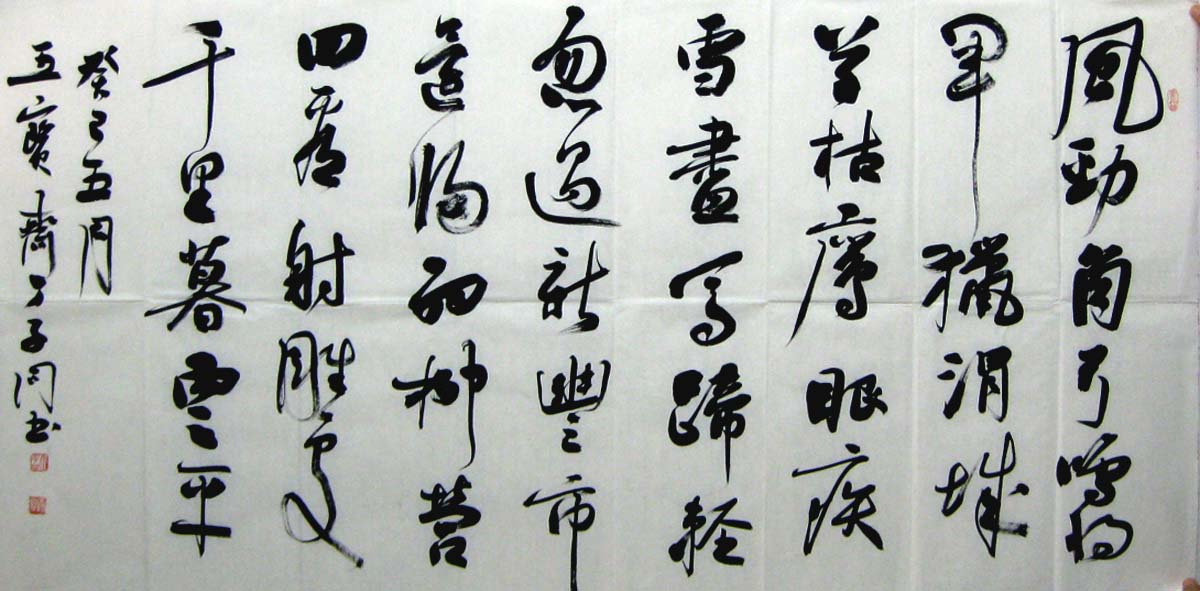 風勁角弓鳴將
軍獵渭城
草枯鷹眼疾
雪盡馬蹄輕
忽過新豐市
還歸細柳營
回看射雕處
千里暮雲平
癸巳五月
五寶齋子同书